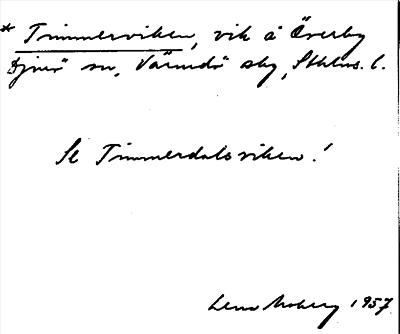 * Timmerviken, vik å Överby
Djurö sn, Värmdö skg, Sthlms. l.
Se Timmerdalsviken!
Lena Moberg 1957